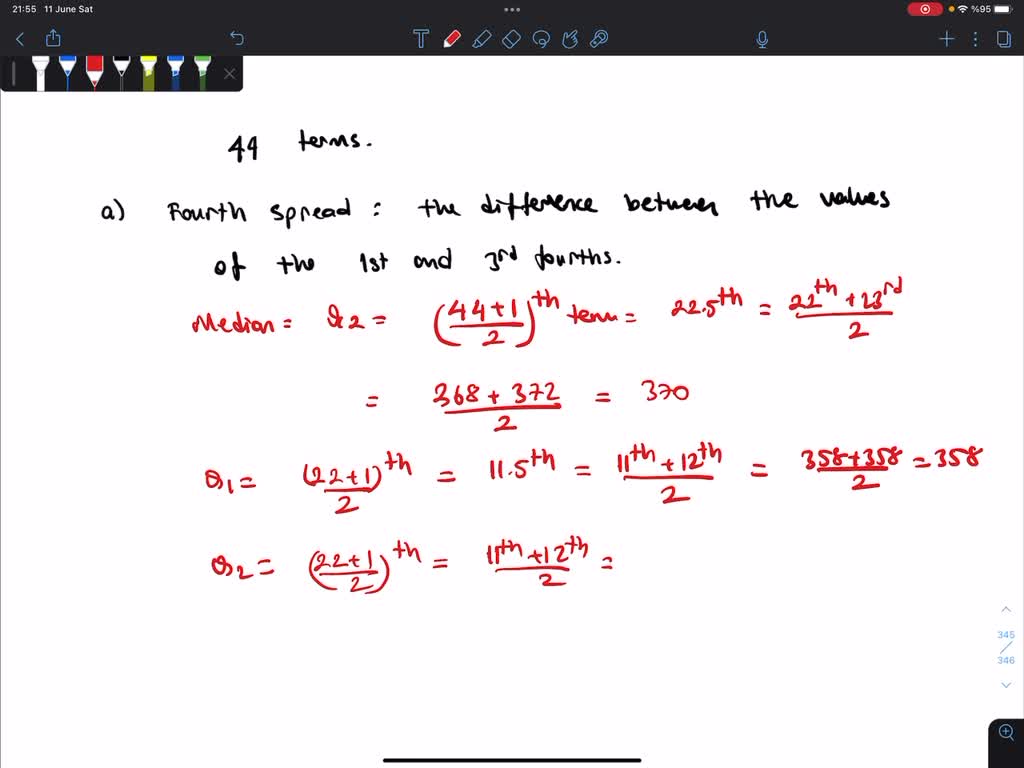 21:55 11 June Sat
%95
44 terms.
a) Fourth spread : the difference between the values
of the 1st and 3rd fourths.
Median = Q2 = (44+1/2)th term = 22.5th = 22th + 23rd/2
= 368 + 372/2 = 370
Q1 = (22+1)th/2 = 11.5th = 11th + 12th/2 = 358+358/2 = 358
Q2 = (22+1/2)th = 11th + 12th/2 =
345
/
346